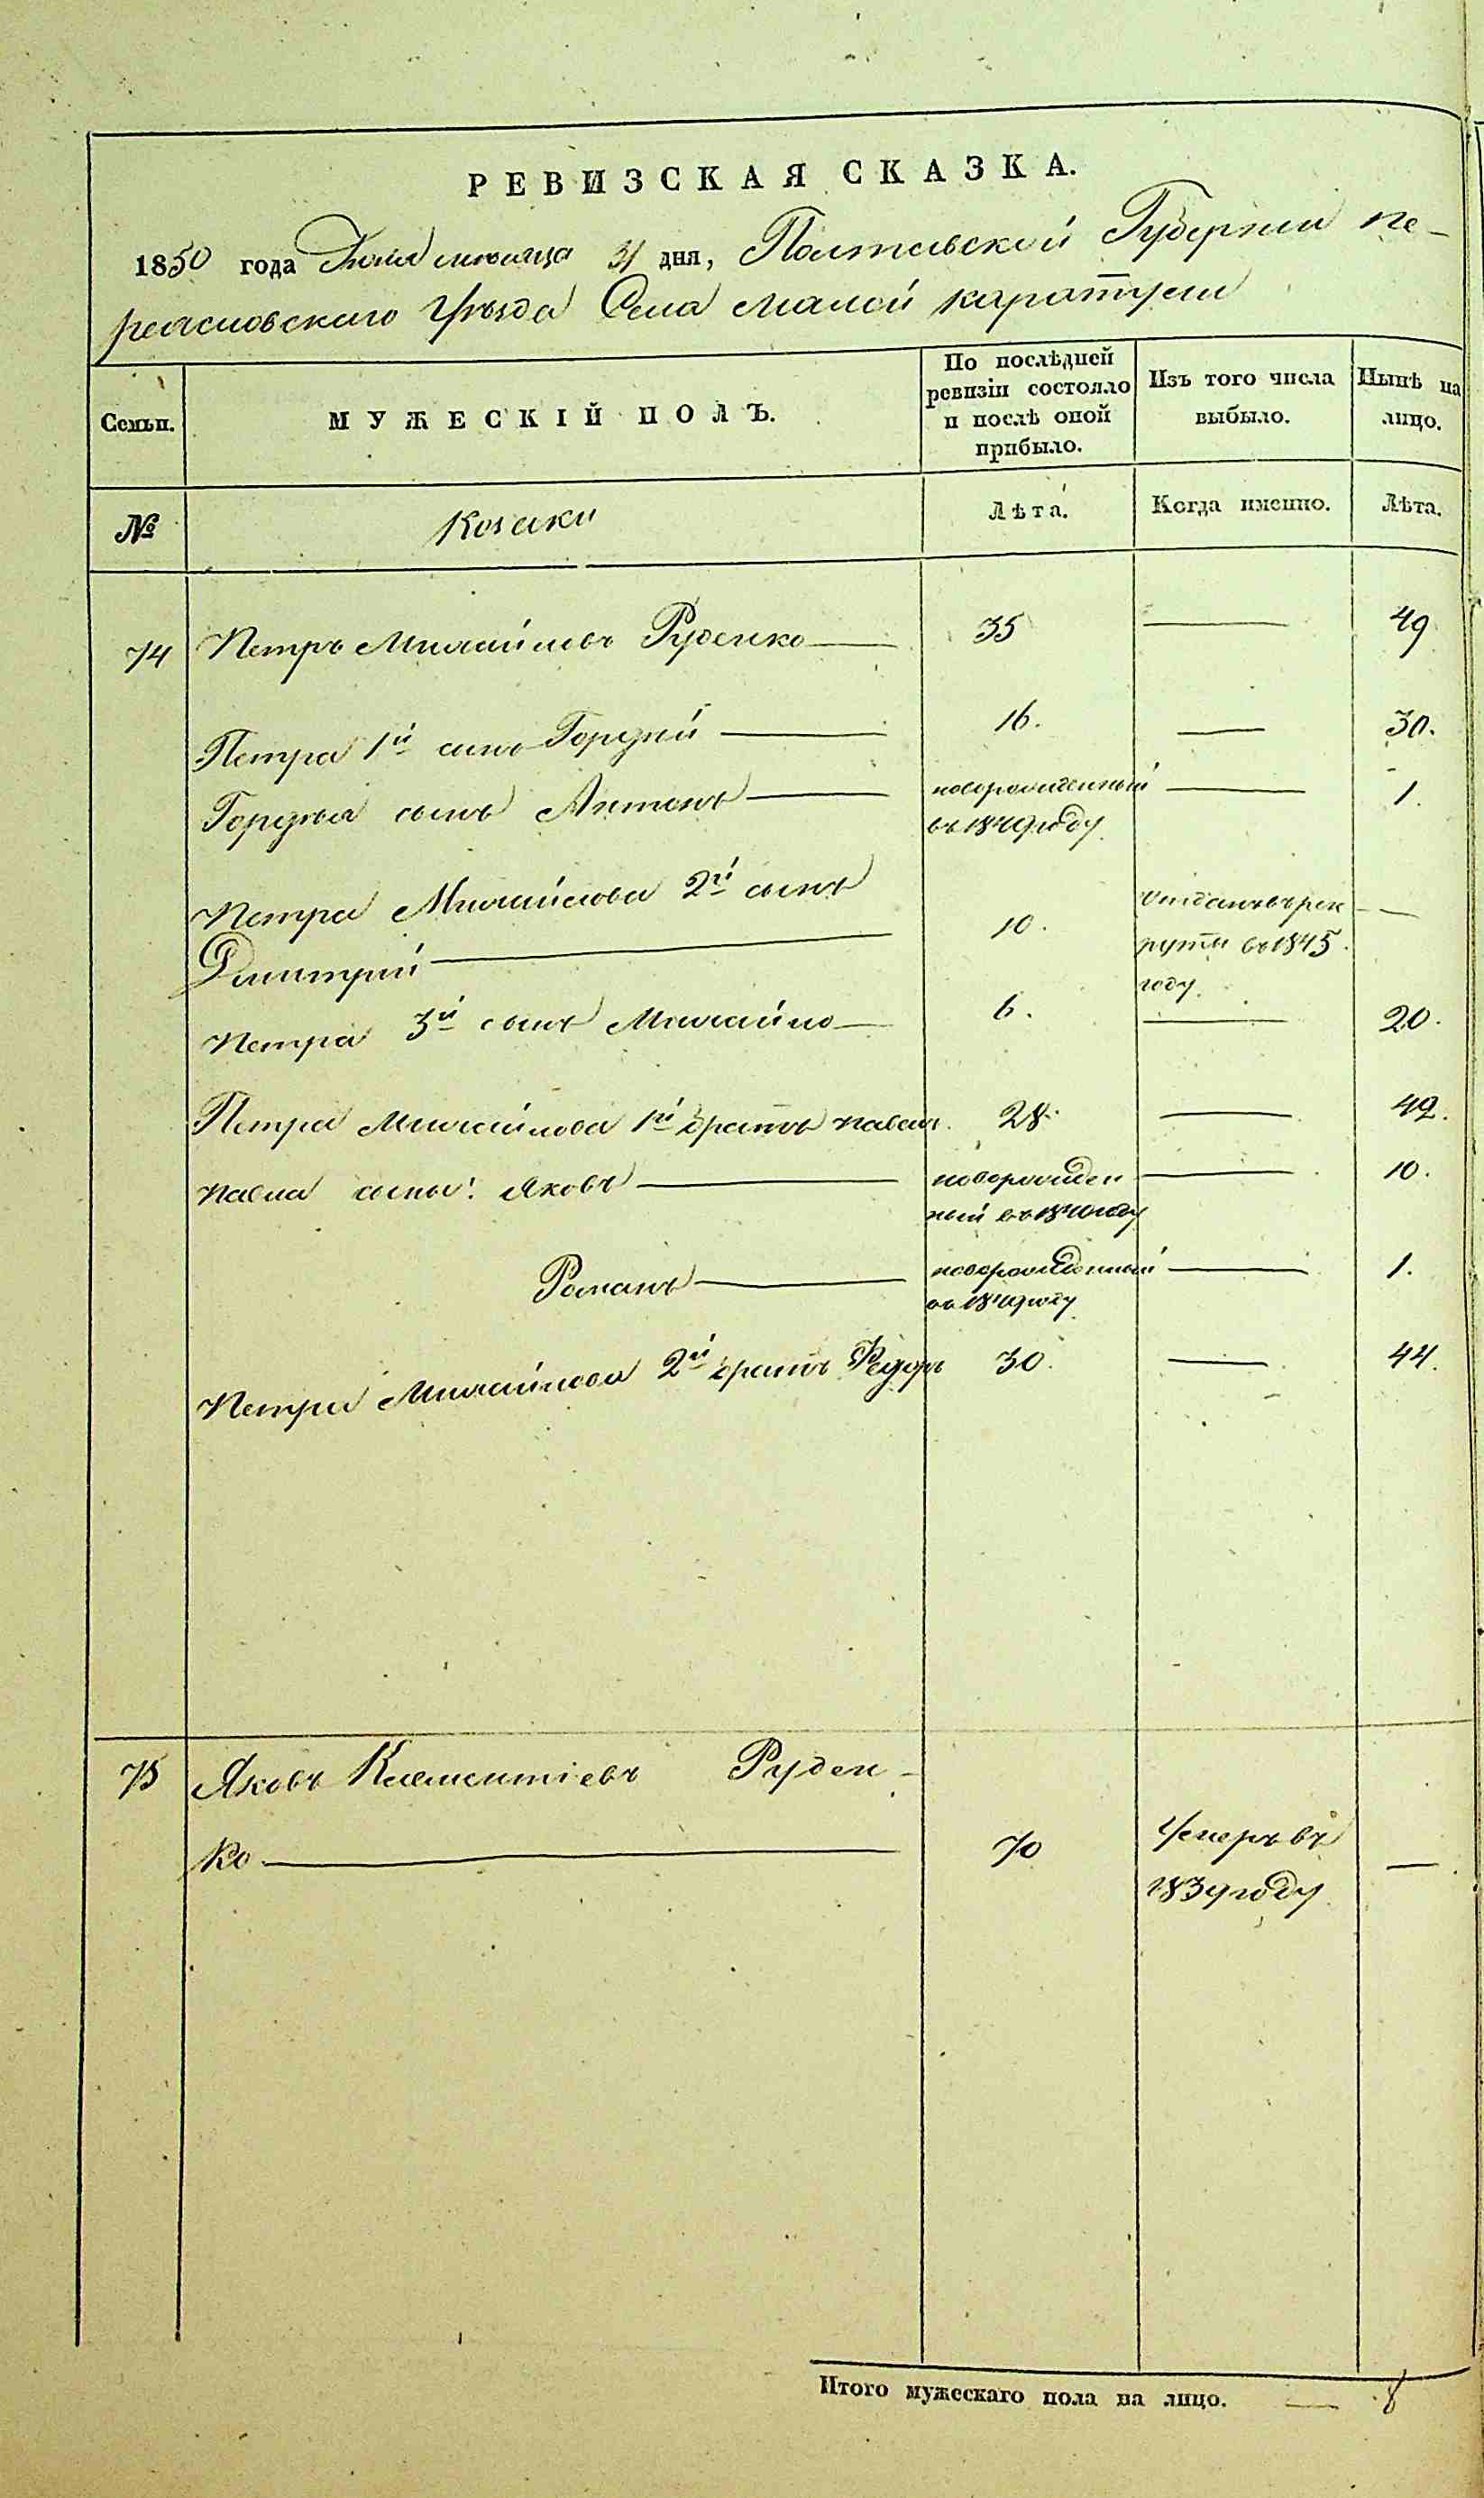 РЕВИЗСКАЯ СКАЗКА.
1850 года Июля месяца 31 дня, Полтавской Губернии Пе-
реясловского Уѣзда Села Малой Каратули
Семьи.
МУЖЕСКІЙ ПОЛЪ.
По послѣдней
ревизіи состояло
и послѣ оной
прибыло.
Изъ того числа
выбыло.
Нынѣ на
лицо.
№
Козаки
Лѣта.
Когда именно.
Лѣта.
74 Петръ Михайловъ Руденко 35 — 49
Петра 1й сынъ Гордѣй 16. — 30.
Гордѣя сынъ Антонъ новорожденный — 1.
въ 1849 году
Петра Михайлова 2й сынъ Отданъ въ рек —
Дмитрій 10. руты въ 1845
году.
Петра 3й сынъ Михайло 6. — 20.
Петра Михайлова 1й братъ Павелъ 28. — 42.
Павла сыны: Яковъ новорожден — 10.
ный въ 1840 году
Романъ новорожденный — 1.
въ 1849 году
Петра Михайлова 2й братъ Федоръ 30. — 44.
75 Яковъ Климентіевъ Руден-
ко 70 Умеръ въ —
1839 году
Итого мужескаго пола на лицо. — 8